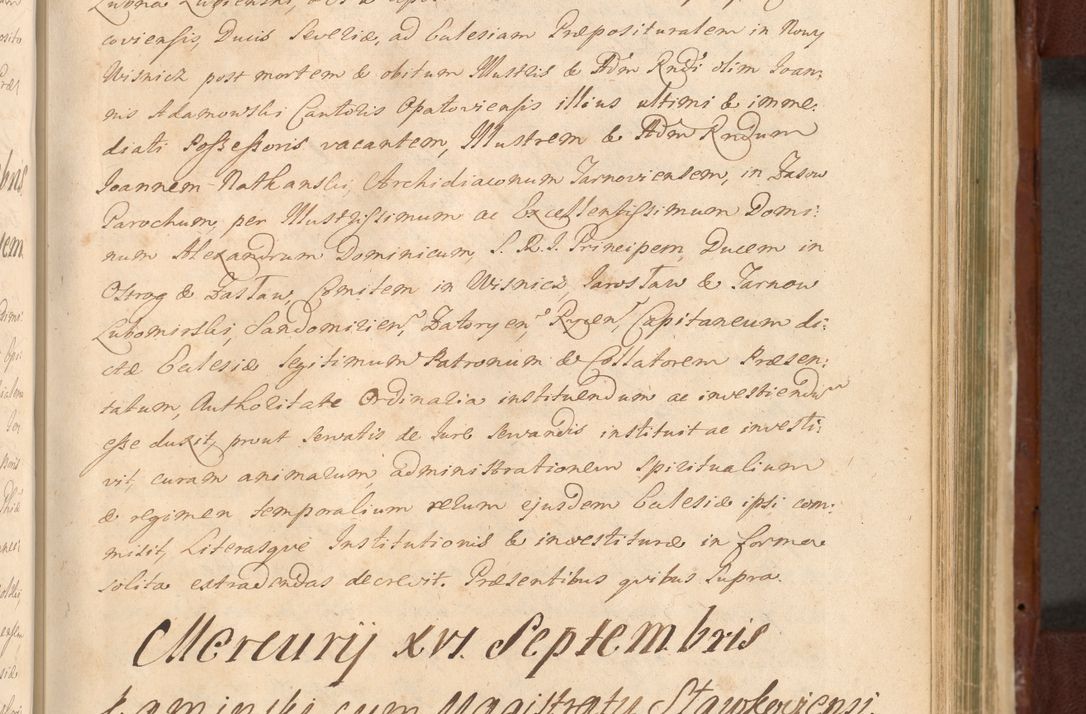 coviensis, Ducis Severiæ, ad Ecclesiam Præposituralem in Nowy
Wisnicz post mortem & obitum Illustris & Adm Rndi olim Joan:
nis Adamowski Cantoris Opatoviensis illius ultimi & imme:
diati Possessoris vacantem, Illustrem & Adm Rndum
Joannem Nathanski, Archidiaconum Tarnoviensem, in Zasow
Parochum, per Illustrissimum ac Excellensissimum Domi:
num Alexandrum Dominicum, S. R. I. Principem, Ducem in
Ostrog & Zaslaw, Comitem in Wisnicz, Jaroslaw & Tarnow
Lubomirski, Sandomirien, Zatoryen, Ryczen, Capitaneum di:
ctæ Ecclesiæ legitimum Patronum & Collatorem Præsen:
tatum, Authoritate Ordinaria instituendum ac investiendum
esse duxit, prout servatis de Jure servandis instituit ac investi:
vit, curam animarum, administrationem spiritualium
& regimen temporalium rerum ejusdem Ecclesiæ ipsi com:
misit, Literasque Institutionis & investituræ in forma
solita extradendas decrevit. Præsentibus quibus supra.
Mercurij XVI. Septembris
Kaminski cum Magistratu Slawkoviensi